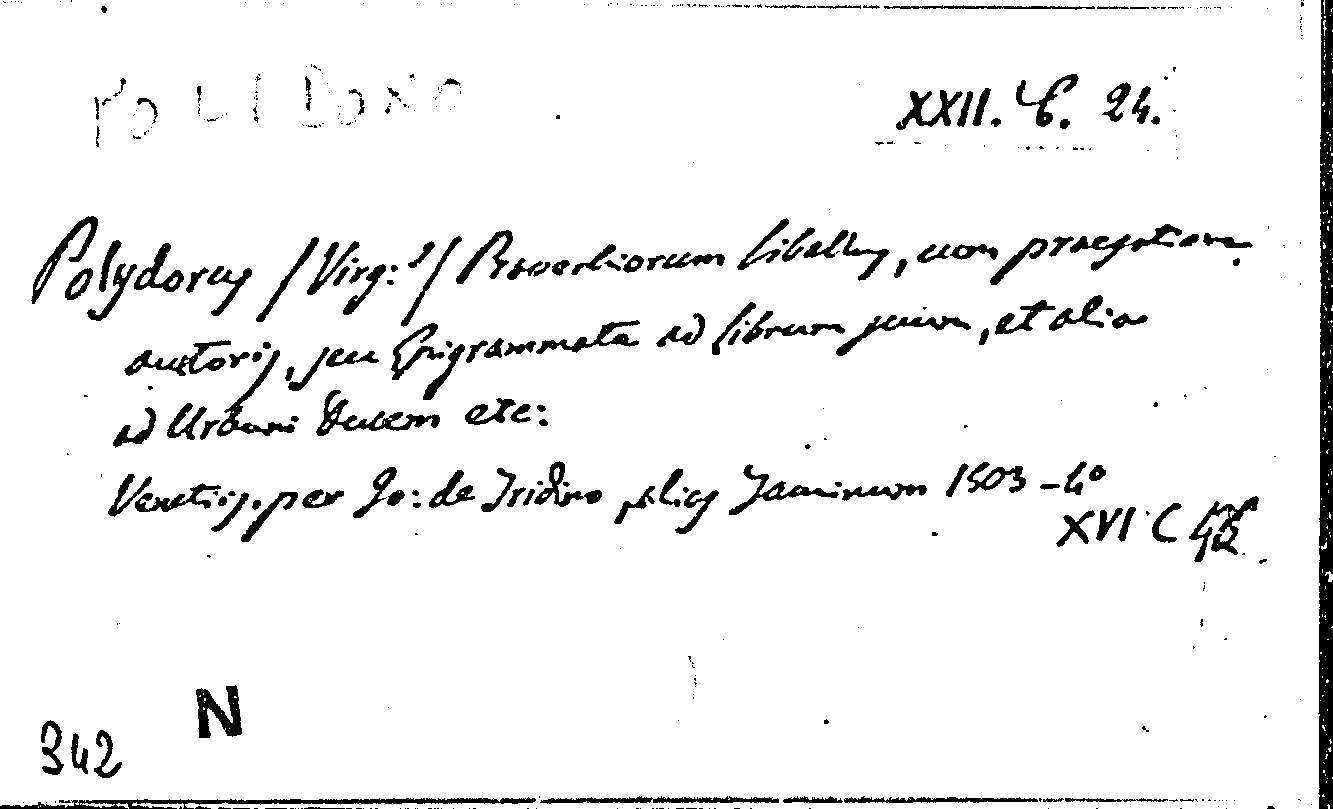 POLIDORO
XXII. C. 24.
Polydorus /Virg:/ Proverbiorum libellus, cum praefatione
auctoris, seu Epigrammata ad librum suum, et alia
ad Urbani Ducem etc:
Venetijs, per Jo: de Tridino, alias Tacuinum 1503 - 4°
XVI C
342 N